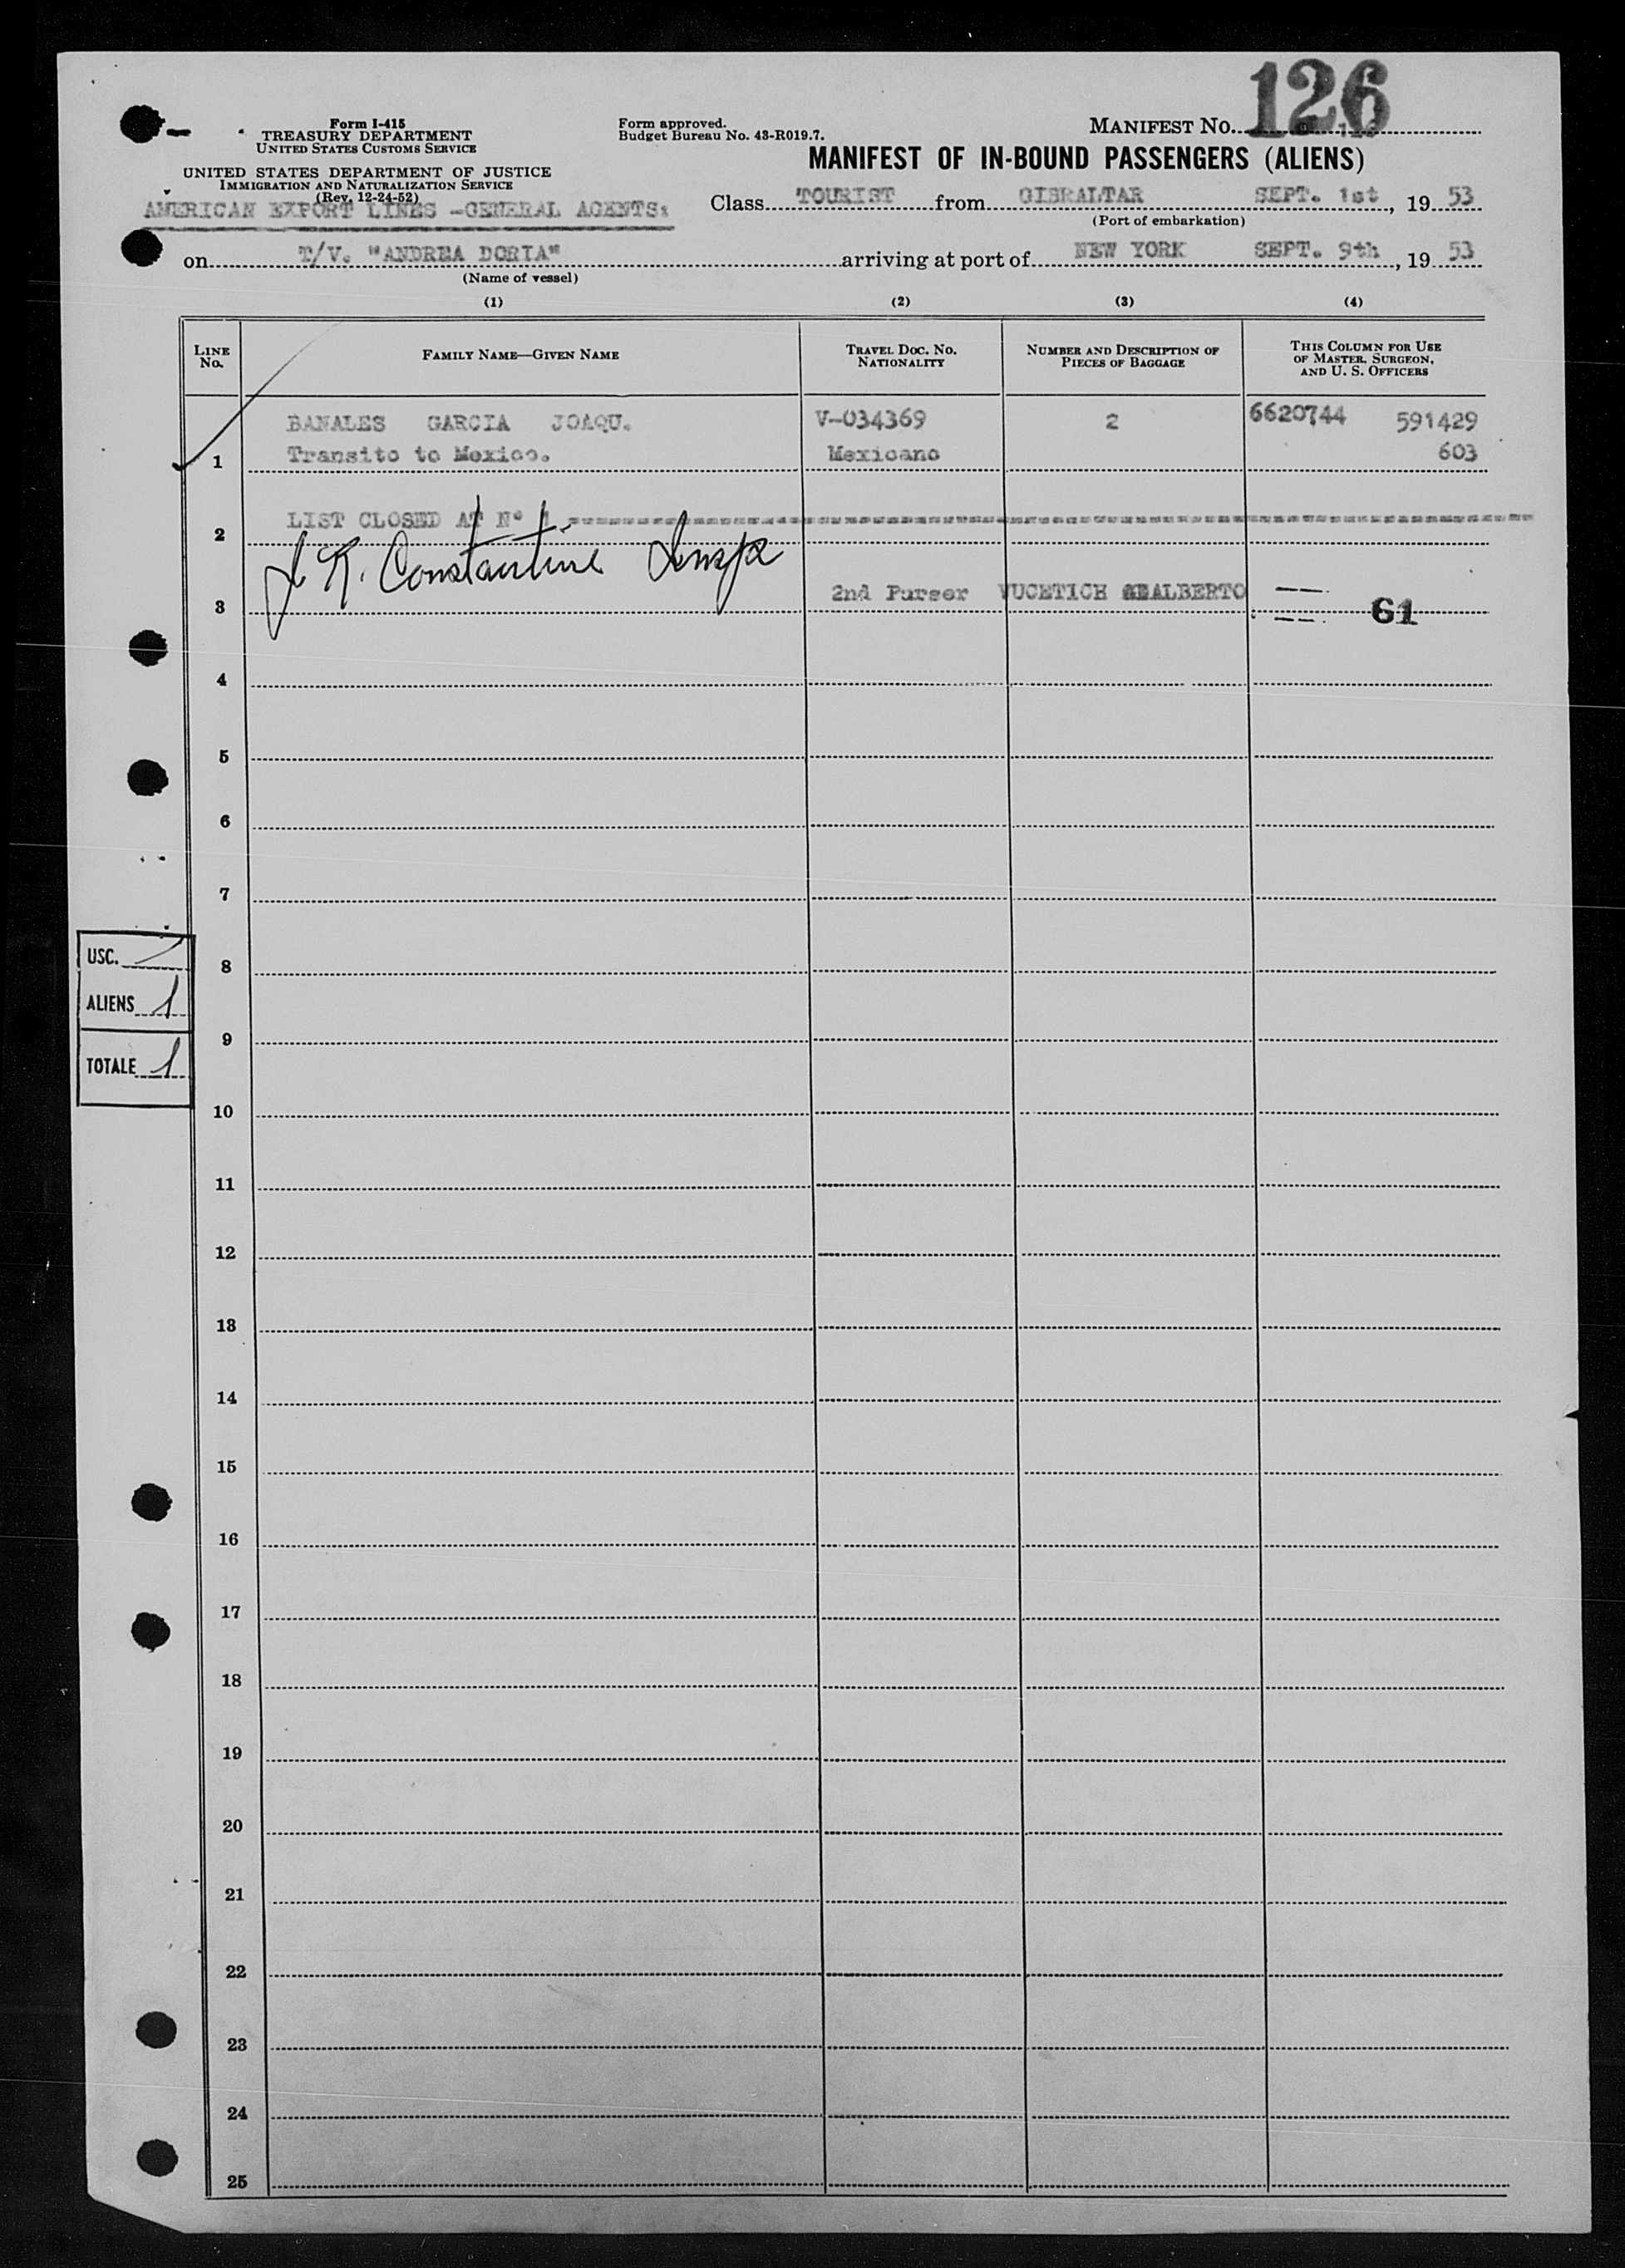 126
Form I-415
TREASURY DEPARTMENT
UNITED STATES CUSTOMS SERVICE
UNITED STATES DEPARTMENT OF JUSTICE
IMMIGRATION AND NATURALIZATION SERVICE
(Rev. 12-24-52)
AMERICAN EXPORT LINES -GENERAL AGENTS:
Form approved.
Budget Bureau No. 43-R019.7.
MANIFEST NO.
MANIFEST OF IN-BOUND PASSENGERS (ALIENS)
Class TOURIST from GIBRALTAR SEPT. 1st, 19 53
(Port of embarkation)
on T/V. "ANDREA DORIA" arriving at port of NEW YORK SEPT. 9th, 19 53
(Name of vessel)
(1) (2) (3) (4)
LINE No. FAMILY NAME—GIVEN NAME TRAVEL DOC. NO. NATIONALITY NUMBER AND DESCRIPTION OF PIECES OF BAGGAGE THIS COLUMN FOR USE OF MASTER, SURGEON, AND U. S. OFFICERS
BANALES GARCIA JOAQU. V-034369 2 6620744 591429
1 Transito to Mexico. Mexicano 603
2 LIST CLOSED AT N° 1.
J R. Constantine Insp
3 2nd Purser VUCETICH ADALBERTO 61
4
5
6
7
USC.
8
ALIENS 1
9
TOTALE 1
10
11
12
13
14
15
16
17
18
19
20
21
22
23
24
25